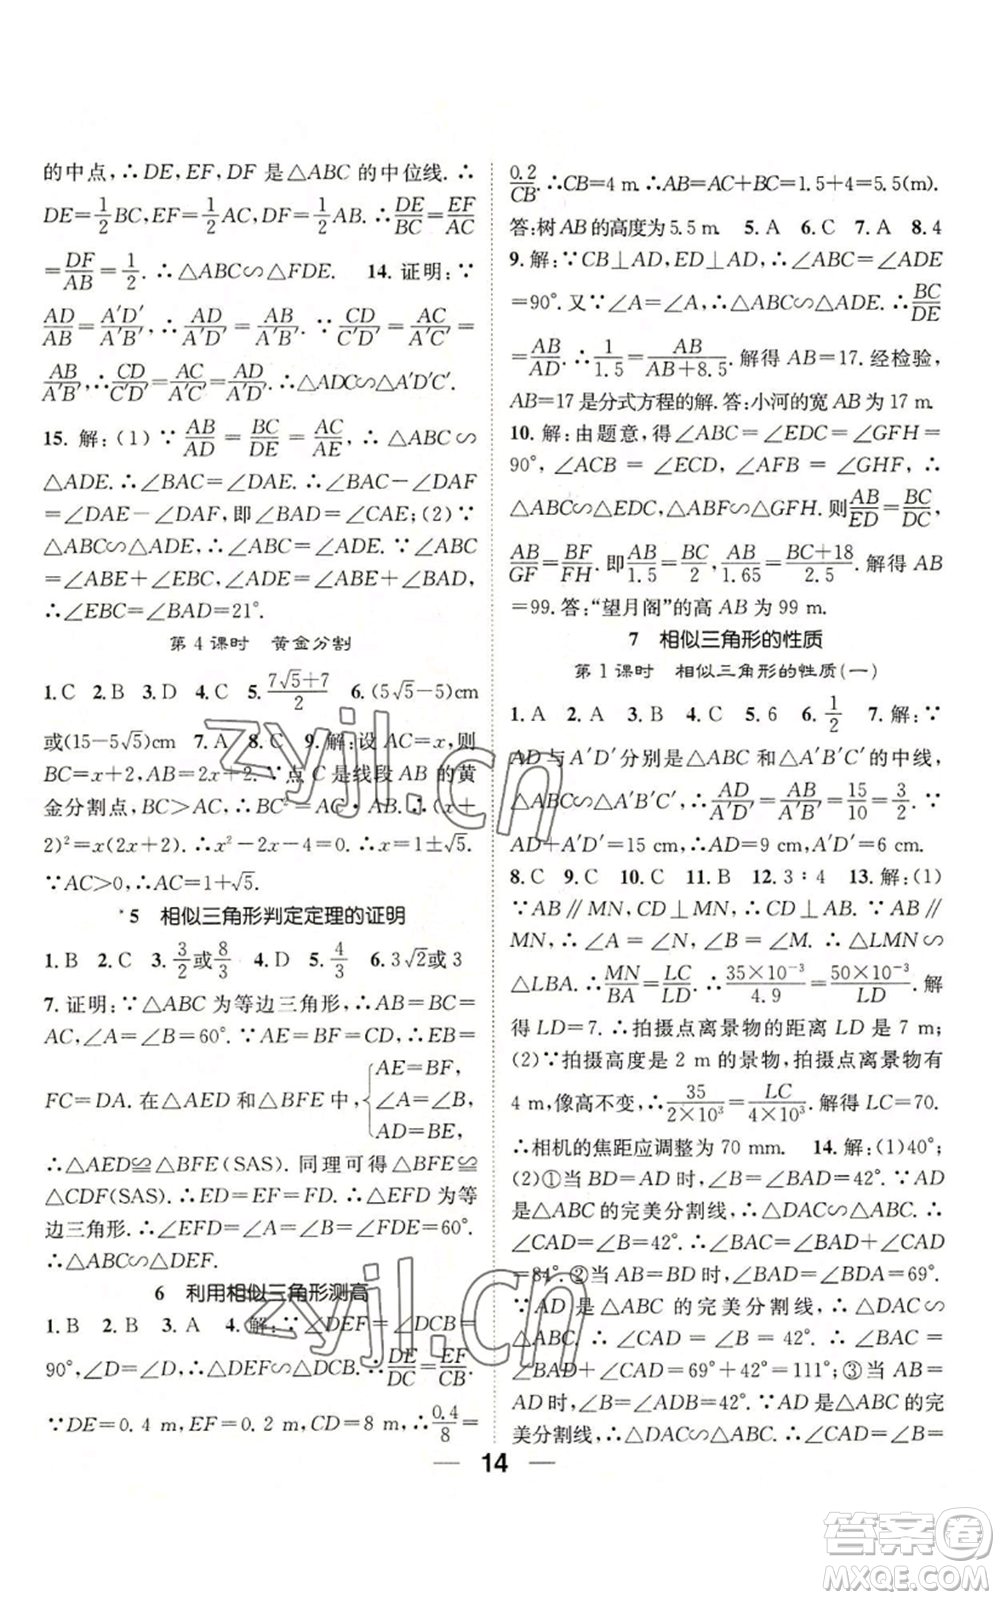 的中点,∴DE,EF,DF 是△ABC 的中位线.∴
DE=1/2BC,EF=1/2AC,DF=1/2AB.∴DE/BC=EF/AC
=DF/AB=1/2.∴△ABC∽△FDE. 14.证明:∵
AD/AB=A′D′/A′B′,∴AD/A′D′=AB/A′B′.∵CD/C′D′=AC/A′C′=
AB/A′B′,∴CD/C′D′=AC/A′C′=AD/A′D′.∴△ADC∽△A′D′C′.
15.解:(1)∵AB/AD=BC/DE=AC/AE,∴△ABC∽
△ADE.∴∠BAC=∠DAE.∴∠BAC-∠DAF
=∠DAE-∠DAF,即∠BAD=∠CAE;(2)∵
△ABC∽△ADE,∴∠ABC=∠ADE.∵∠ABC
=∠ABE+∠EBC,∠ADE=∠ABE+∠BAD,
∴∠EBC=∠BAD=21°.
第4课时 黄金分割
1.C 2.B 3.D 4.C 5.(7√5+7)/2 6.(5√5-5)cm
或(15-5√5)cm 7.A 8.C 9.解:设 AC=x,则
BC=x+2,AB=2x+2.∵点 C 是线段 AB 的黄
金分割点,BC>AC,∴BC²=AC·AB.∴(x+
2)²=x(2x+2).∴x²-2x-4=0.∴x=1±√5.
∵AC>0,∴AC=1+√5.
*5 相似三角形判定定理的证明
1.B 2.C 3.3/2或8/3 4.D 5.4/3 6.3√2或 3
7.证明:∵△ABC 为等边三角形,∴AB=BC=
AC,∠A=∠B=60°.∵AE=BF=CD,∴EB=
FC=DA.在△AED 和△BFE 中,{AE=BF,
∠A=∠B,
AD=BE,
∴△AED≌△BFE(SAS).同理可得△BFE≌
△CDF(SAS).∴ED=EF=FD.∴△EFD 为等
边三角形.∴∠EFD=∠A=∠B=∠FDE=60°.
∴△ABC∽△DEF.
6 利用相似三角形测高
1.B 2.B 3.A 4.解:∵∠DEF=∠DCB=
90°,∠D=∠D,∴△DEF∽△DCB.∴DE/DC=EF/CB.
∵DE=0.4 m,EF=0.2 m,CD=8 m,∴0.4/8=
0.2/CB.∴CB=4 m.∴AB=AC+BC=1.5+4=5.5(m).
答:树 AB 的高度为 5.5 m. 5.A 6.C 7.A 8.4
9.解:∵CB⊥AD,ED⊥AD,∴∠ABC=∠ADE
=90°.又∵∠A=∠A,∴△ABC∽△ADE.∴BC/DE
=AB/AD.∴1/1.5=AB/(AB+8.5).解得 AB=17.经检验,
AB=17 是分式方程的解.答:小河的宽 AB 为 17 m.
10.解:由题意,得∠ABC=∠EDC=∠GFH=
90°,∠ACB=∠ECD,∠AFB=∠GHF,∴
△ABC∽△EDC,△ABF∽△GFH.则AB/ED=BC/DC,
AB/GF=BF/FH.即AB/1.5=BC/2,AB/1.65=(BC+18)/2.5.解得 AB
=99.答:“望月阁”的高 AB 为 99 m.
7 相似三角形的性质
第1课时 相似三角形的性质(一)
1.A 2.A 3.B 4.C 5.6 6.1/2 7.解:∵
AD 与 A′D′分别是△ABC 和△A′B′C′的中线,
△ABC∽△A′B′C′,∴AD/A′D′=AB/A′B′=15/10=3/2.∵
AD+A′D′=15 cm,∴AD=9 cm,A′D′=6 cm.
8.C 9.C 10.C 11.B 12.3∶4 13.解:(1)
∵AB∥MN,CD⊥MN,∴LD⊥AB.∵AB∥
MN,∴∠A=∠N,∠B=∠M.∴△LMN∽
△LBA.∴MN/BA=LC/LD.∴35×10⁻³/4.9=50×10⁻³/LD.解
得 LD=7.∴拍摄点离景物的距离 LD 是 7 m;
(2)∵拍摄高度是 2 m 的景物,拍摄点离景物有
4 m,像高不变,∴35/2×10³=LC/4×10³.解得 LC=70.
∴相机的焦距应调整为 70 mm. 14.解:(1)40°;
(2)①当 BD=AD 时,∠BAD=∠B=42°.∵AD
是△ABC 的完美分割线,∴△DAC∽△ABC.∴
∠CAD=∠B=42°.∴∠BAC=∠BAD+∠CAD
=84°.②当 AB=BD 时,∠BAD=∠BDA=69°.
∵AD 是△ABC 的完美分割线,∴△DAC∽
△ABC.∴∠CAD=∠B=42°.∴∠BAC=
∠BAD+∠CAD=69°+42°=111°;③当 AB=
AD 时,∠B=∠ADB=42°.∵AD 是△ABC 的完
美分割线,∴△DAC∽△ABC.∴∠CAD=∠B=
14
zyjl.cn
zyjl.cn
答案圈
MXQE.COM